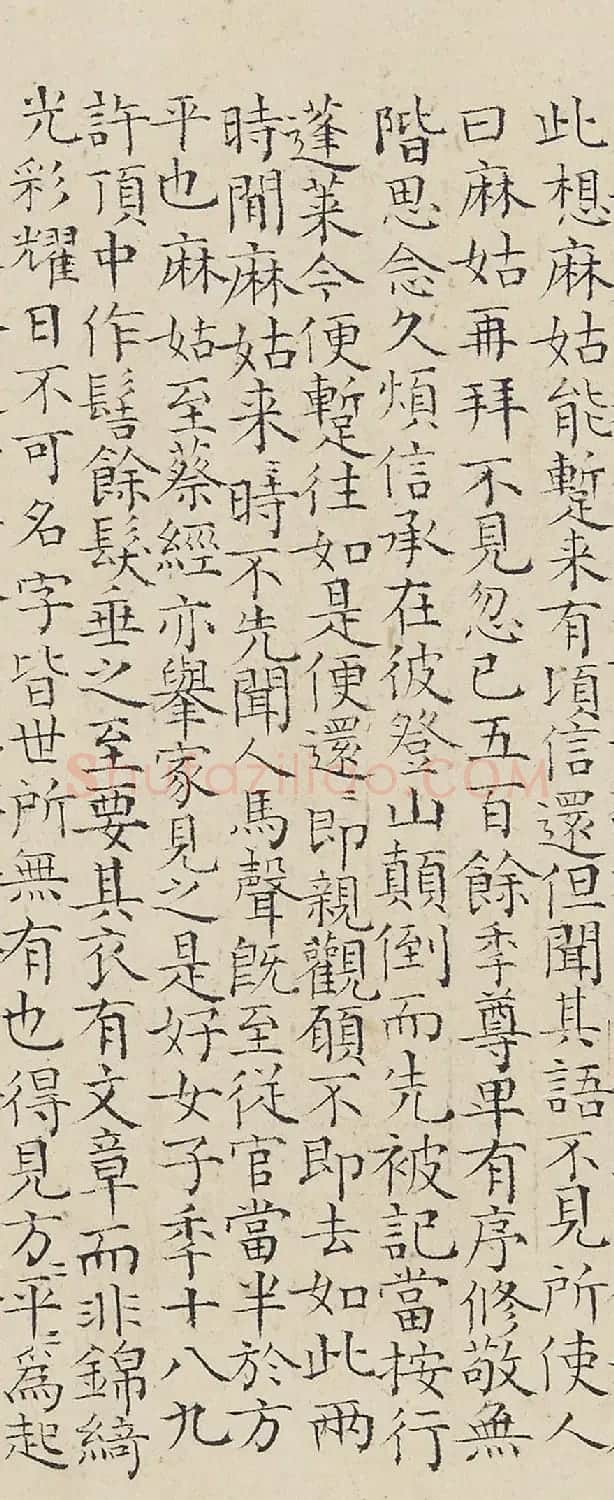 此想麻姑能蹔来有頃信還但聞其語不見所使人
曰麻姑再拜不見忽已五百餘秊尊卑有序修敬無
階思念久煩信承在彼登山顛倒而先被記當按行
蓬莱今便蹔往如是便還〻即親觀願不即去如此兩
時間麻姑来〻時不先聞人馬聲旣至從官當半於方
平也麻姑至蔡經亦舉家見之是好女子秊十八九
許頂中作髻餘髮垂之至要其衣有文章而非錦綺
光彩耀日不可名字皆世所無有也得見方〻平〻爲起
Shufaziliao.COM